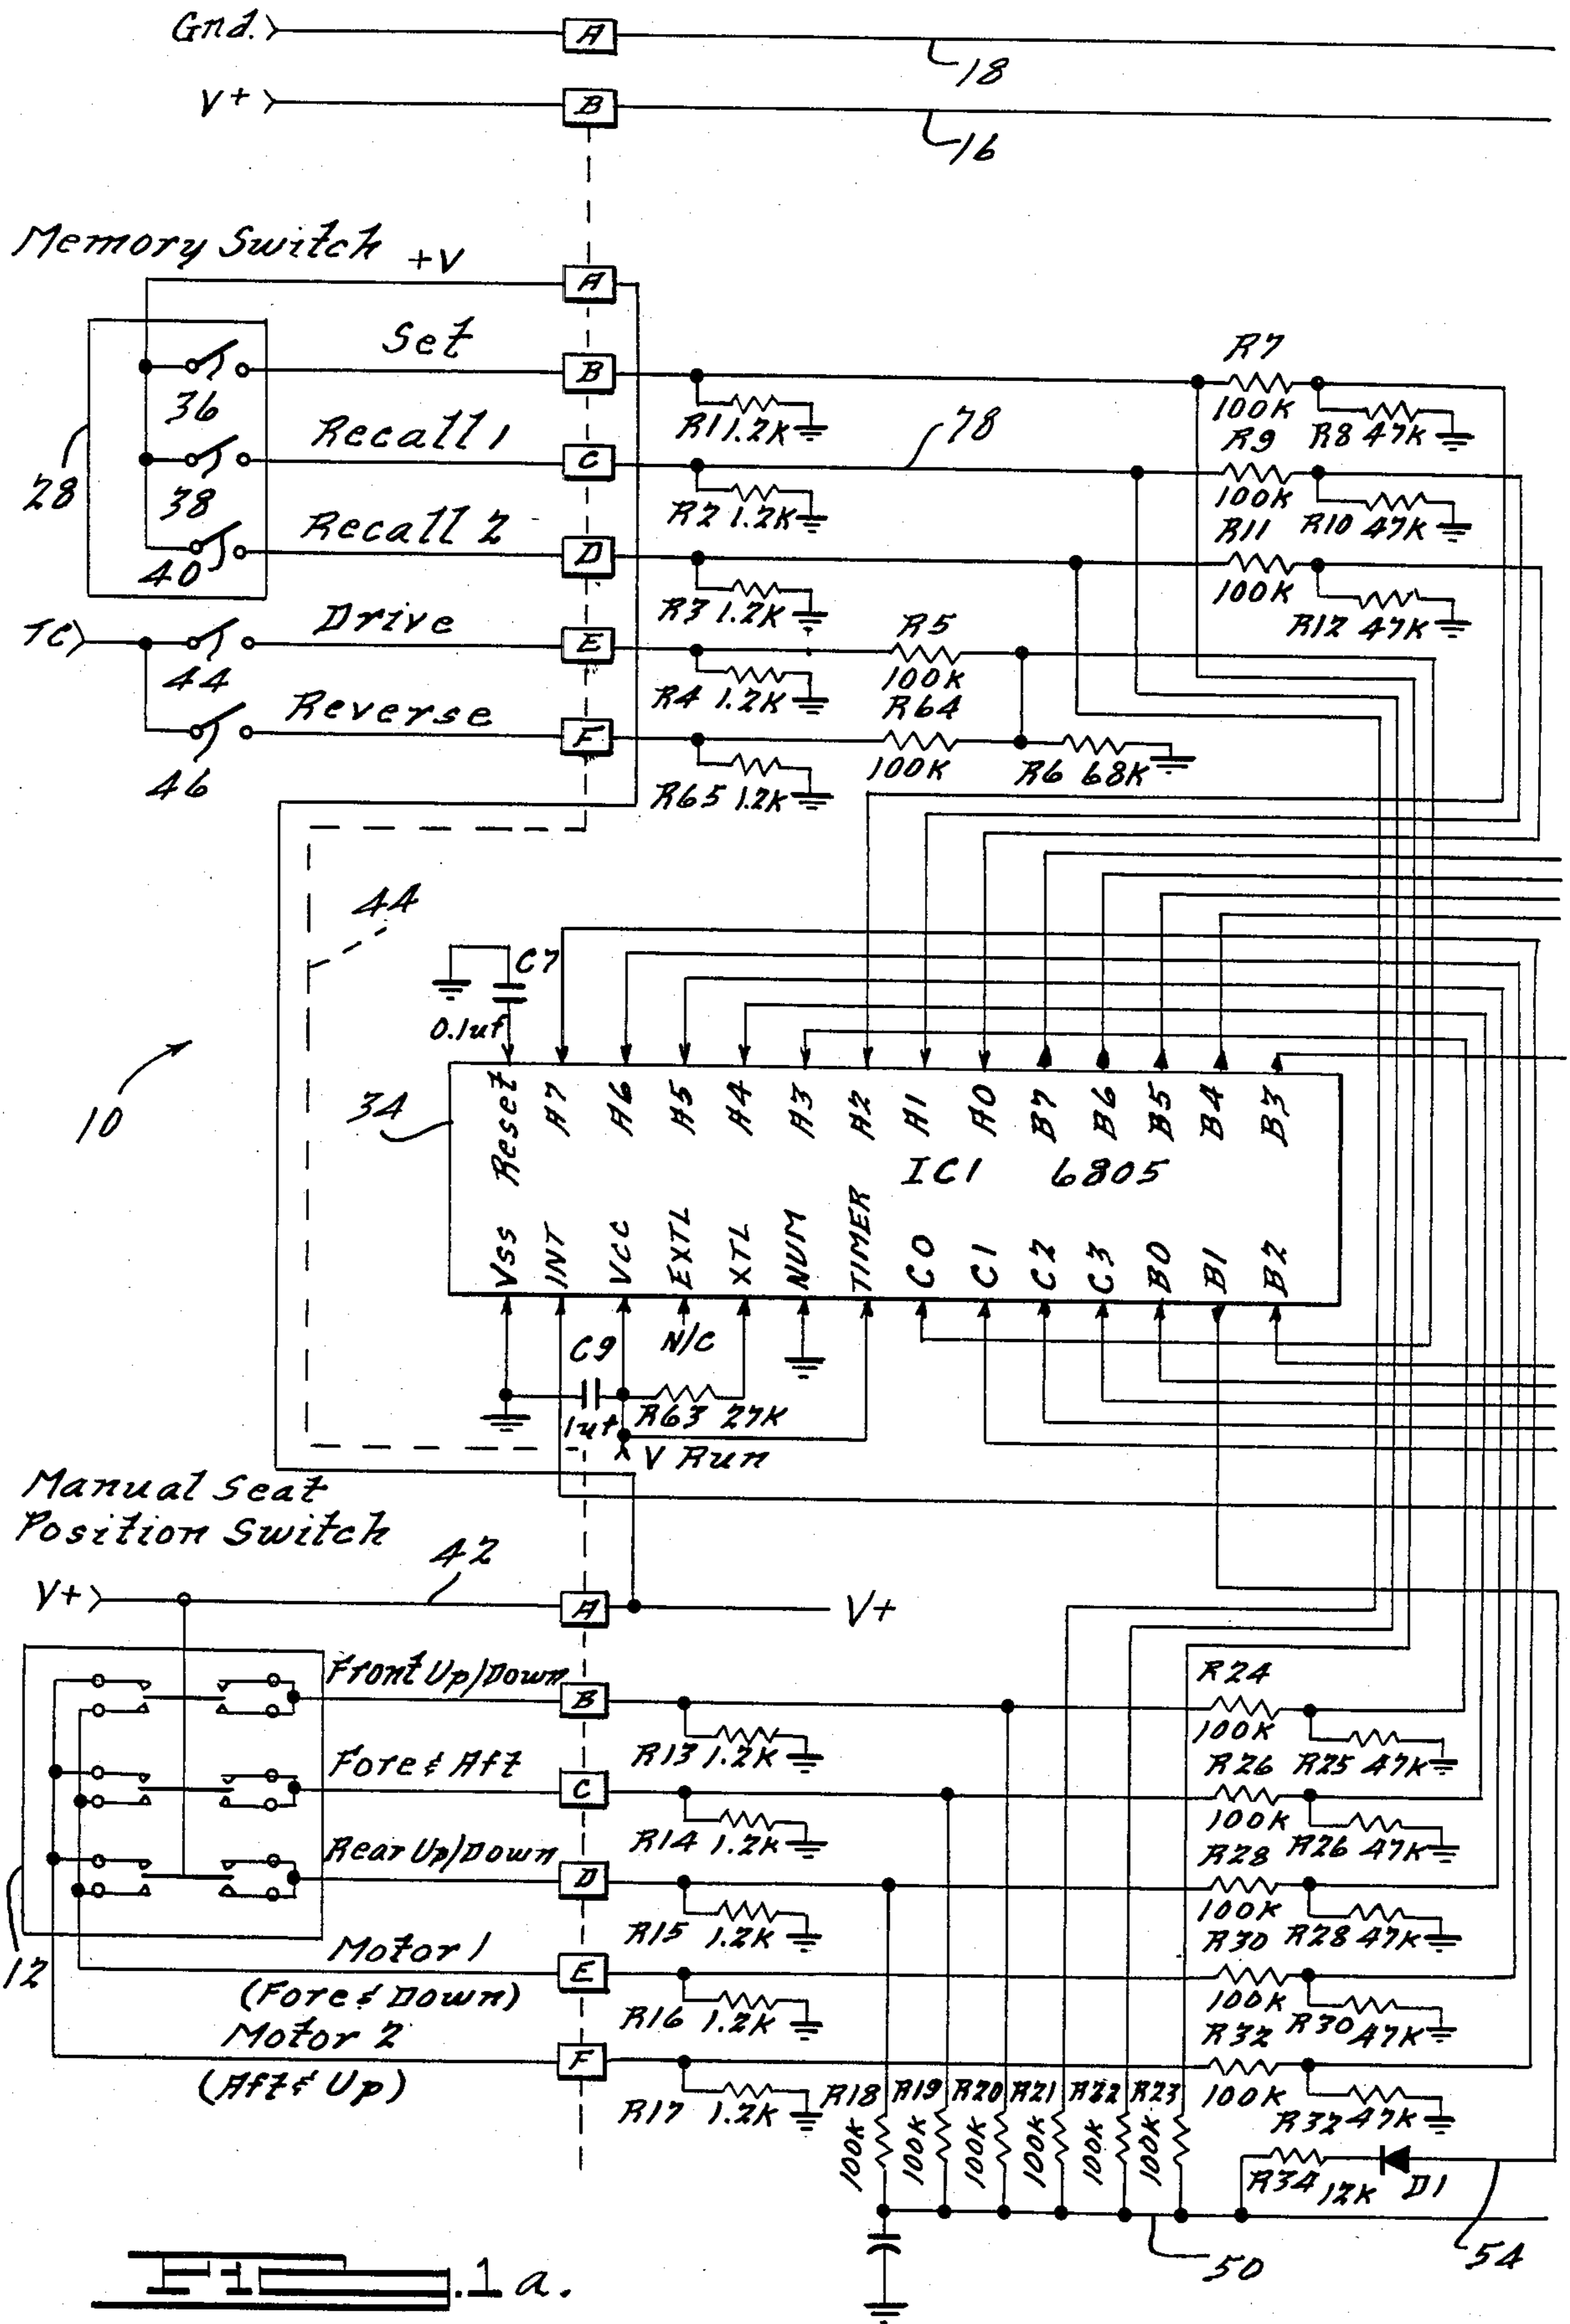 Gnd. A 18
V+ B 16
Memory Switch +V A
Set B R7
36 R1 1.2K 100K R8 47K
28 Recall 1 C 78 R9
38 R2 1.2K 100K R10 47K
40 Recall 2 D R11
R3 1.2K 100K R12 47K
TC Drive E R5
44 R4 1.2K 100K
Reverse F R64
46 R65 1.2K 100K R6 68K
44
C7
0.1uf
10
34
Reset A7 A6 A5 A4 A3 A2 A1 A0 B7 B6 B5 B4 B3
IC1 6805
Vss INT Vcc EXTL XTL NUM TIMER C0 C1 C2 C3 B0 B1 B2
C9 N/C
1uf R63 27K
V Run
Manual Seat
Position Switch
42
V+ A V+
Front Up/Down B R24
R13 1.2K 100K R25 47K
Fore & Aft C R26
R14 1.2K 100K R26 47K
Rear Up/Down D R28
R15 1.2K 100K R28 47K
12
Motor 1 E R30
(Fore & Down) R16 1.2K 100K R30 47K
Motor 2 F R32
(Aft & Up) R17 1.2K 100K R32 47K
R18 R19 R20 R21 R22 R23
100K 100K 100K 100K 100K 100K
R34 12K D1
50 54
Fig.1a.